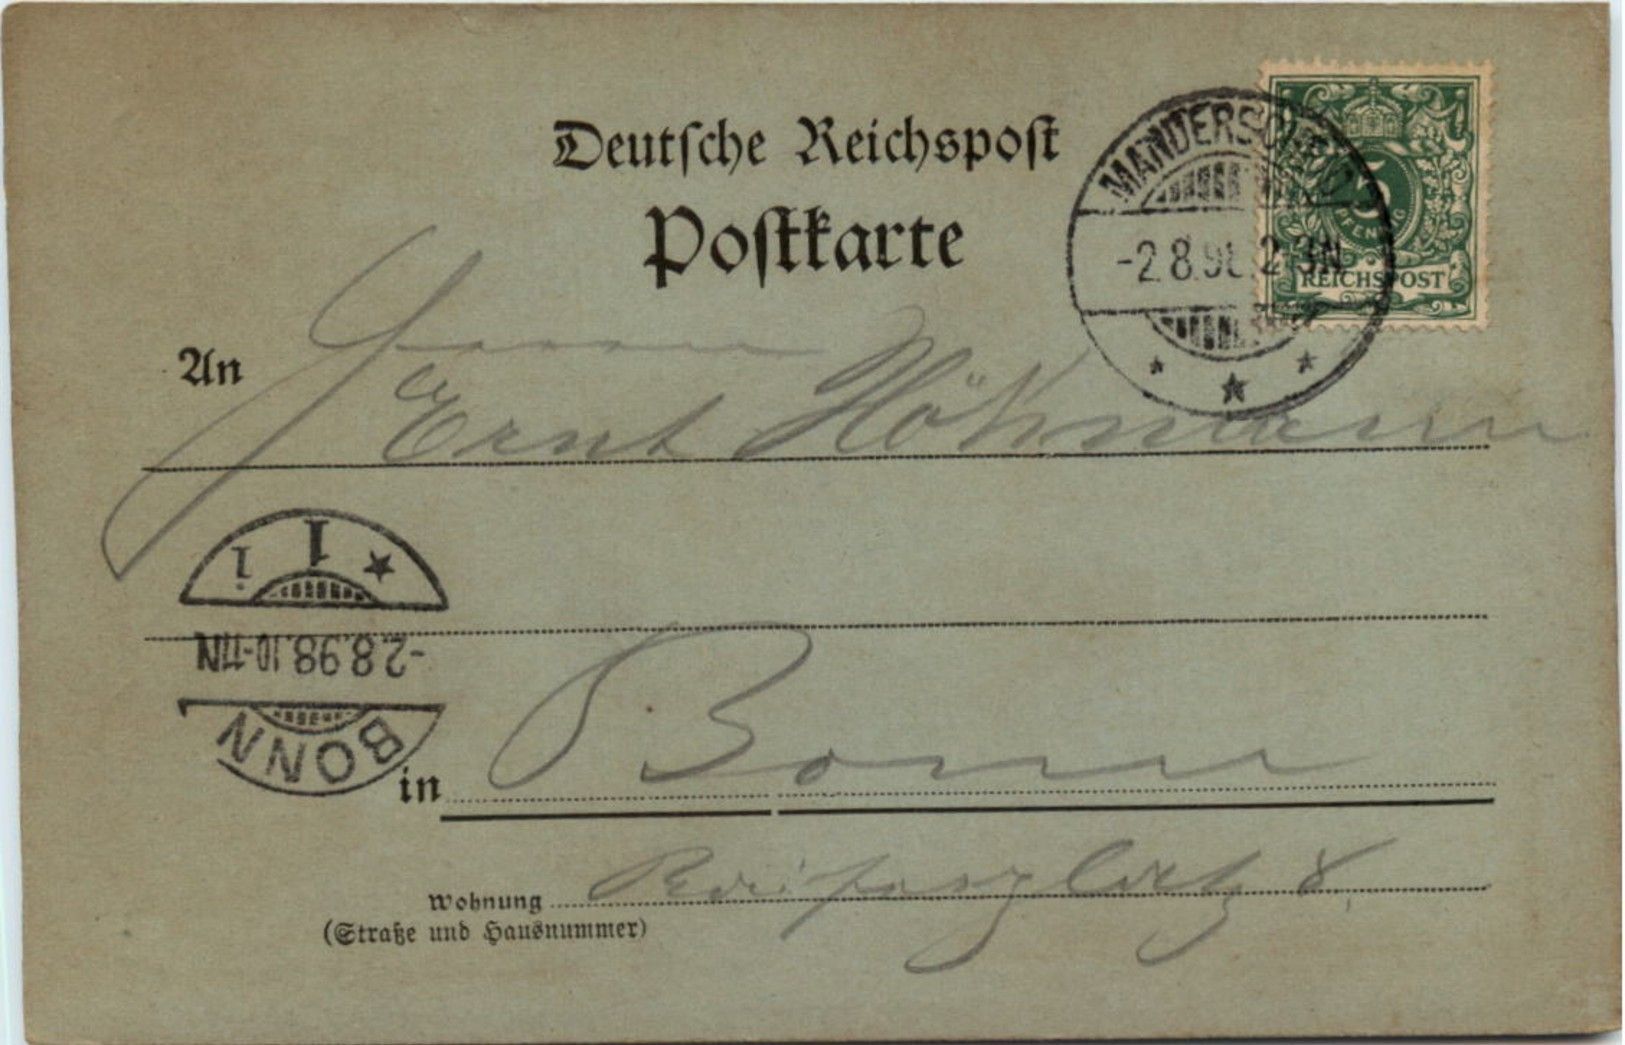 Deutsche Reichspost
Postkarte
MANDERSCHEID
-2.8.98. 2-3N
5
PFENNIG
REICHSPOST
An
Herrn
Ernst
in Bonn
Wohnung 8.
(Straße und Hausnummer)
BONN
-2.8.98.10-11N
1 i